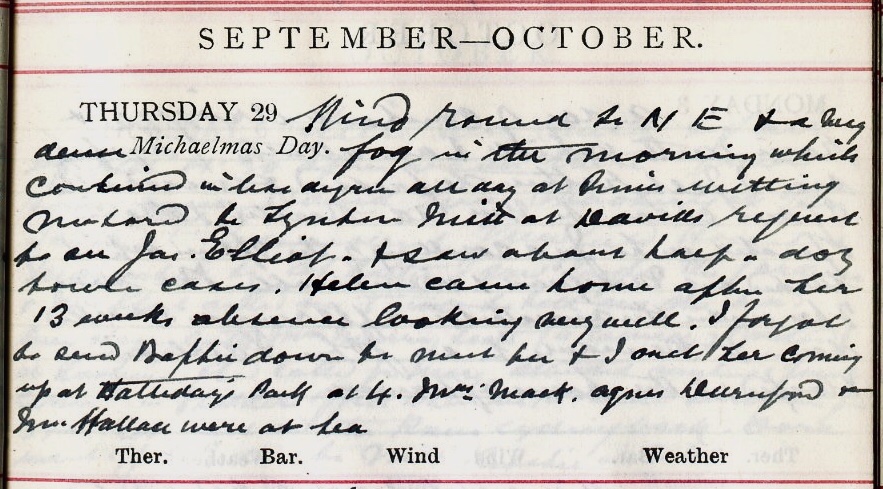 SEPTEMBER—OCTOBER.
THURSDAY 29 Wind round to N E & a very
dense Michaelmas Day. fog in the morning which
continued in less degree all day at times wetting
to Lynton at Davids request
to see Jas. Elliot. & saw about half a doz
town cases. Helen came home after her
13 weeks absence looking very well. I forgot
to send down to meet her & I met her coming
up at Halliday's Park at 4. Mrs. Mack. Agnes Durnford &
Mrs Hallac were at tea
Ther. Bar. Wind Weather